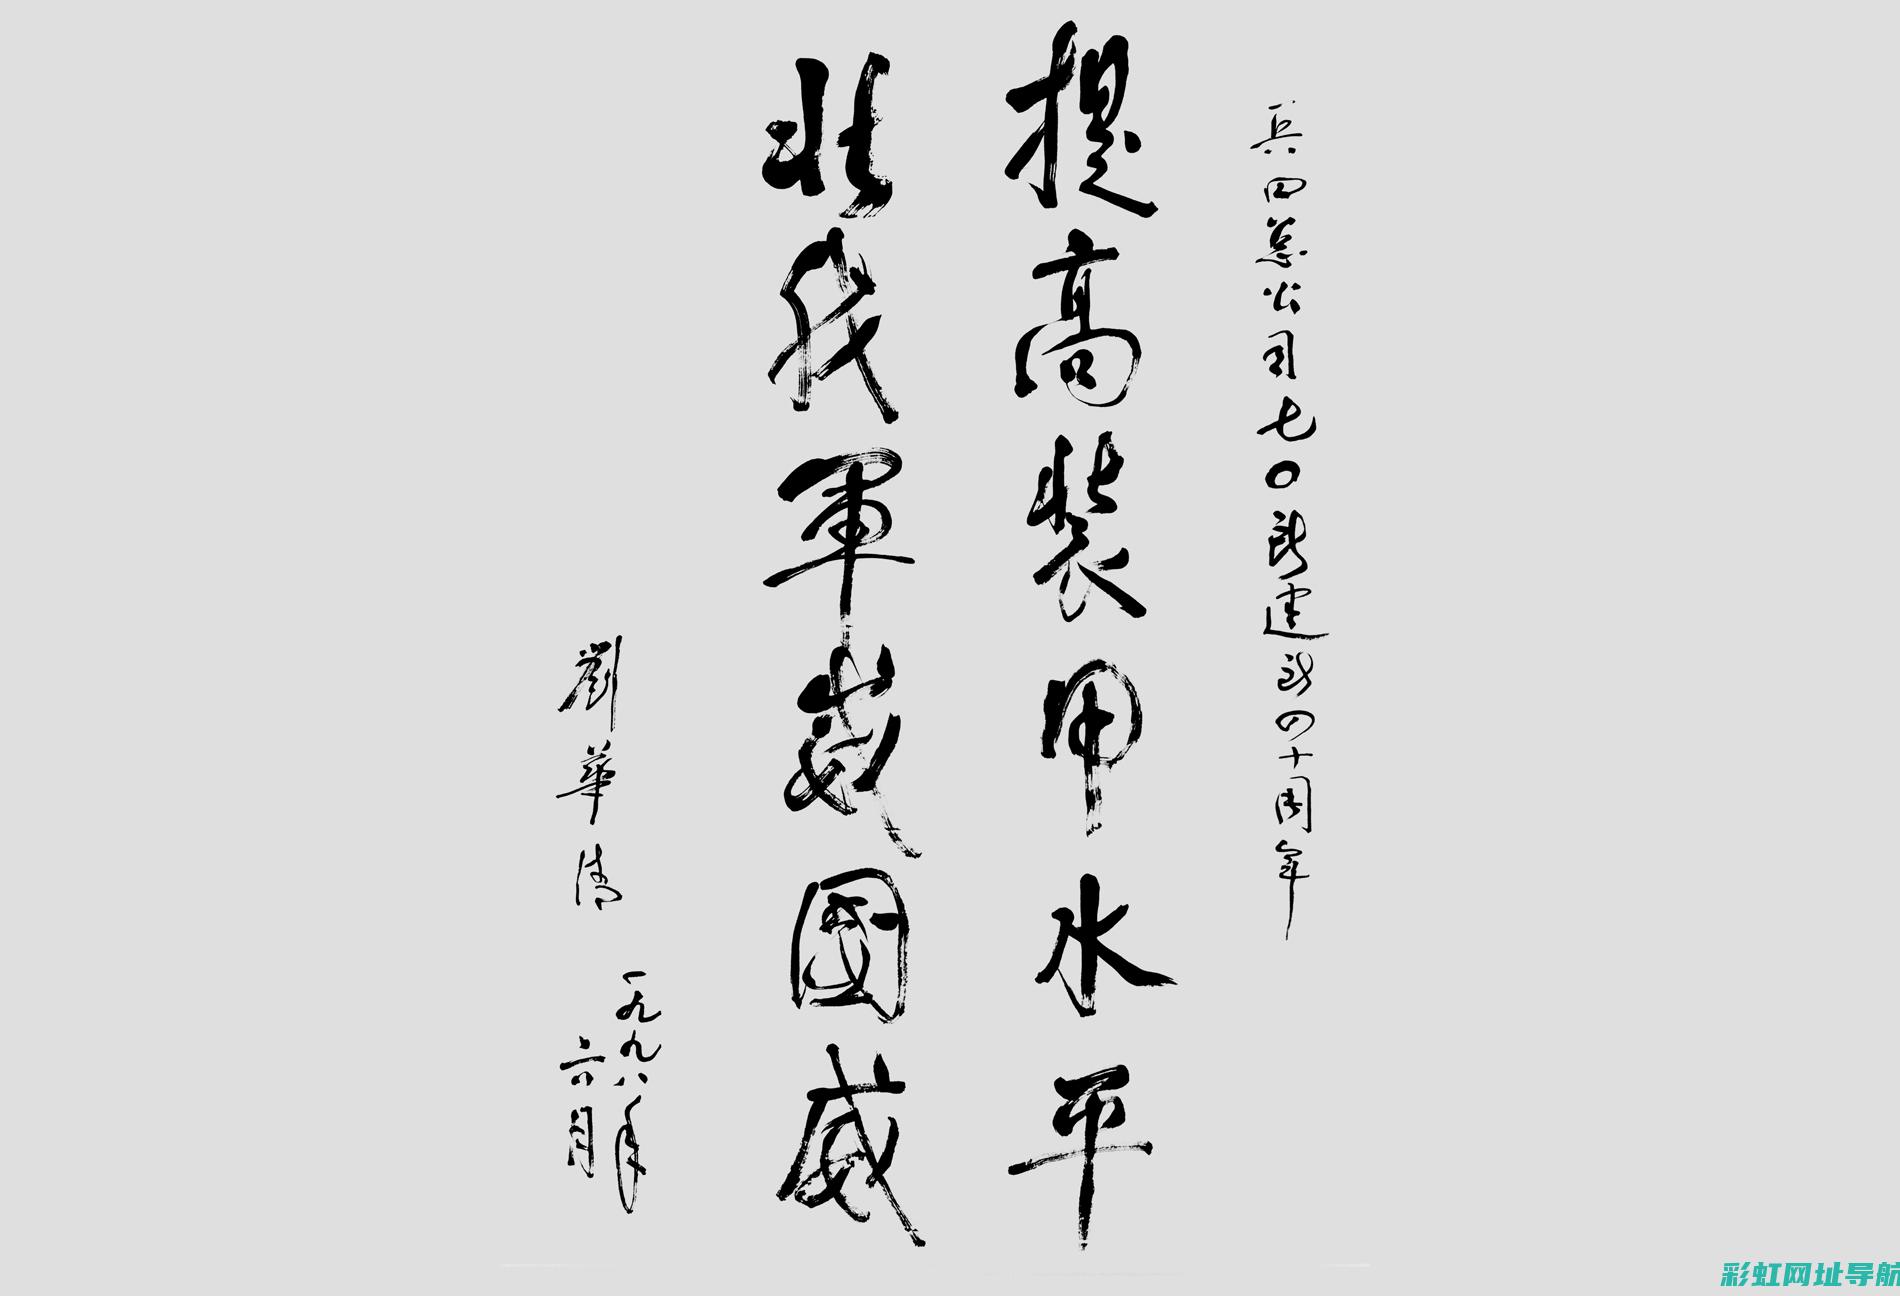 兵器总公司七〇所建所四十周年
提高裝甲水平
壯我軍威國威
劉華清
一九九八年
六月
彩虹网址导航